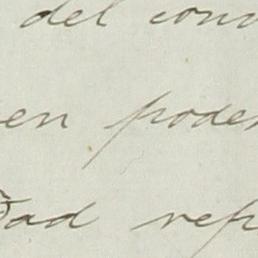 del conv
en poder
dad rep